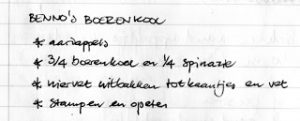 BENNO'S BOERENKOOL
* aardappels
* 3/4 boerenkool en 1/4 spinazie
* niervet uitbakken tot kaantjes en vet
* stampen en opeten